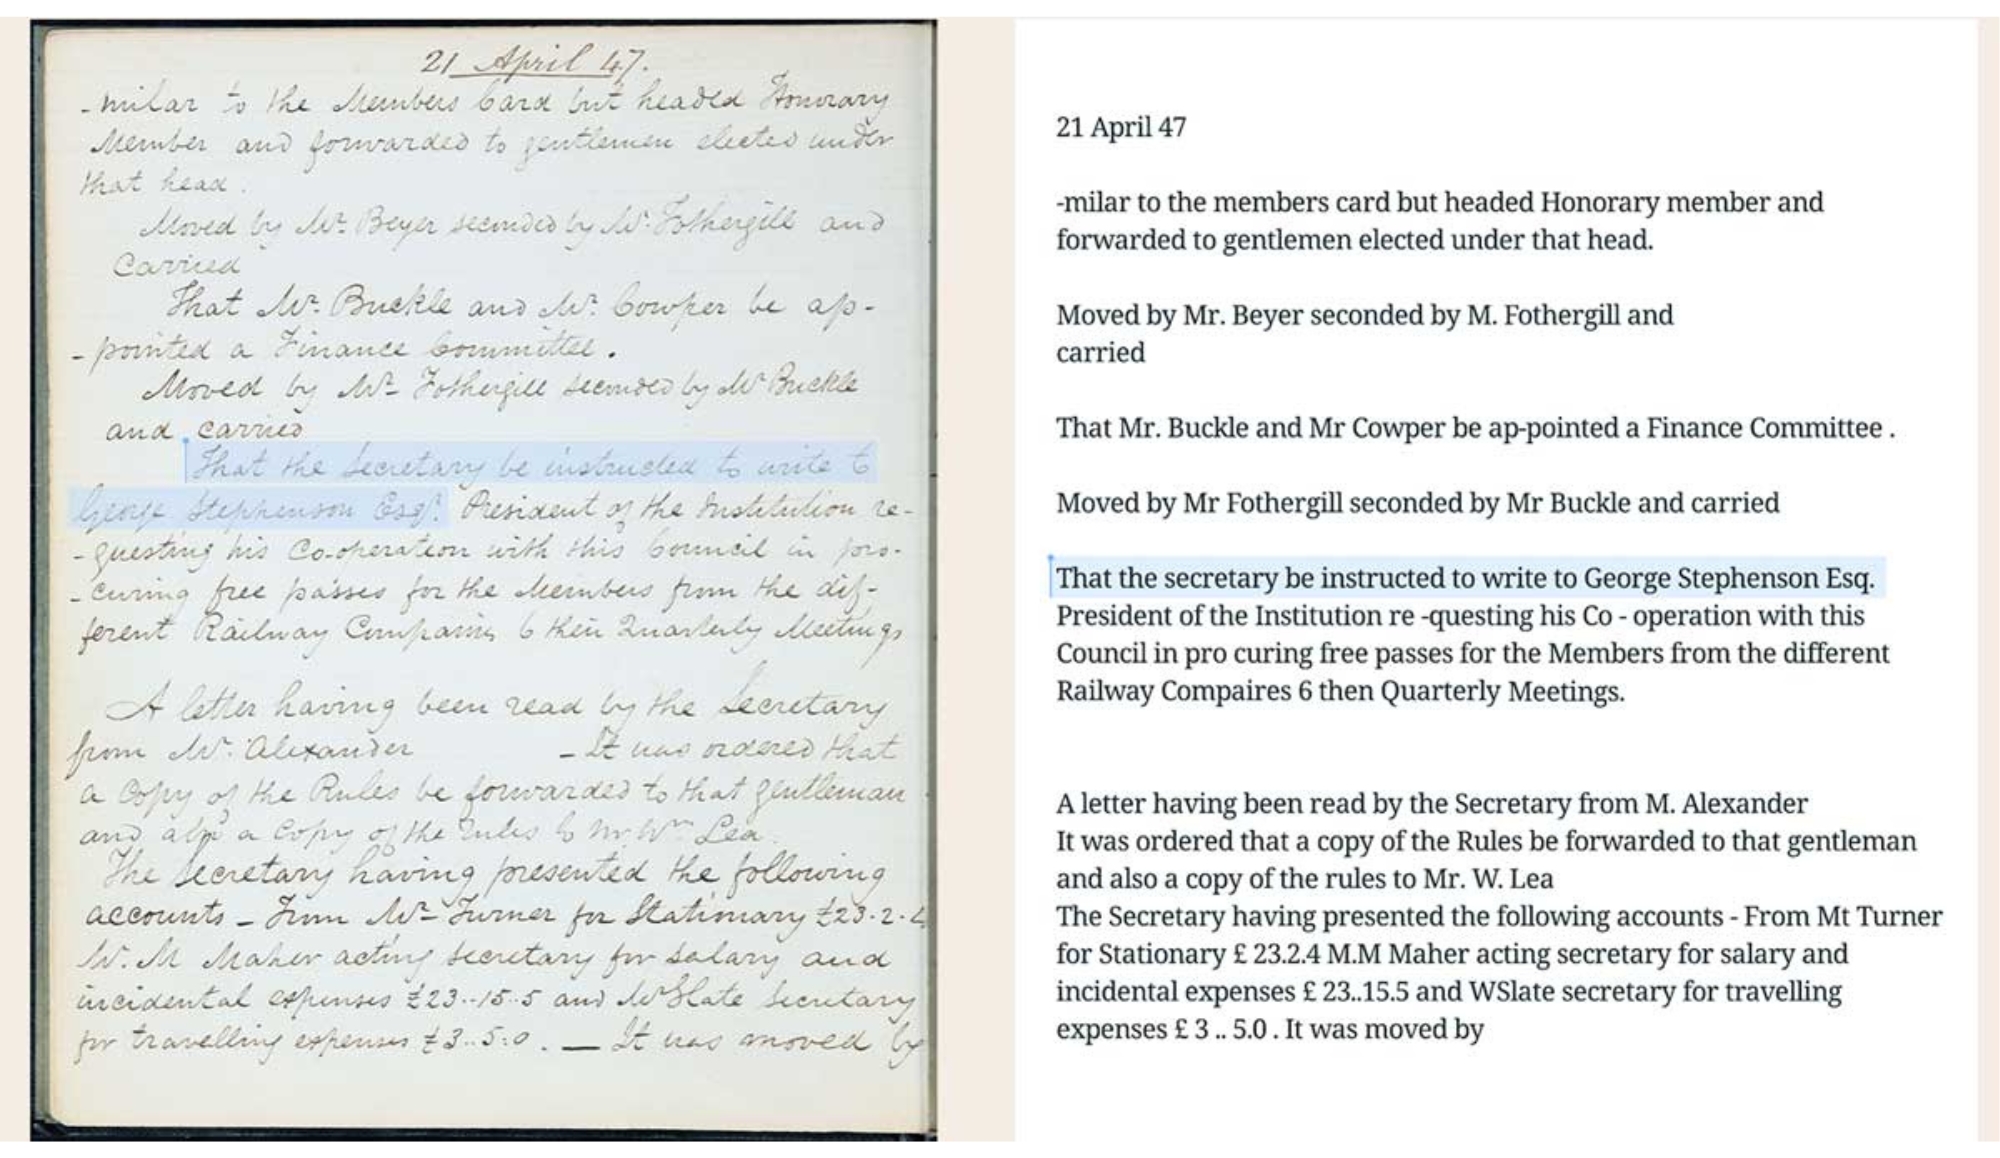 21 April 47.
-milar to the Members Card but headed Honorary
Member and forwarded to gentlemen elected under
that head.
Moved by Mr. Beyer seconded by Mr. Fothergill and
Carried
That Mr. Buckle and Mr. Cowper be ap-
-pointed a Finance Committee.
Moved by Mr. Fothergill seconded by Mr Buckle
and carried
That the Secretary be instructed to write to
George Stephenson Esqr. President of the Institution re-
-questing his Co-operation with this Council in pro-
-curing free passes for the Members from the dif-
ferent Railway Companies to their Quarterly Meetings
A letter having been read by the Secretary
from Mr. Alexander - It was ordered that
a Copy of the Rules be forwarded to that gentleman
and also a Copy of the rules to Mr. Wm Lea.
The Secretary having presented the following
accounts - From Mr Turner for Stationary £23.2.4
Mr. M Maher acting Secretary for salary and
incidental expenses £23..15..5 and Mr Slate Secretary
for travelling expenses £3..5.0. — It was moved by
21 April 47
-milar to the members card but headed Honorary member and
forwarded to gentlemen elected under that head.
Moved by Mr. Beyer seconded by M. Fothergill and
carried
That Mr. Buckle and Mr Cowper be ap-pointed a Finance Committee .
Moved by Mr Fothergill seconded by Mr Buckle and carried
That the secretary be instructed to write to George Stephenson Esq.
President of the Institution re -questing his Co - operation with this
Council in pro curing free passes for the Members from the different
Railway Compaires 6 then Quarterly Meetings.
A letter having been read by the Secretary from M. Alexander
It was ordered that a copy of the Rules be forwarded to that gentleman
and also a copy of the rules to Mr. W. Lea
The Secretary having presented the following accounts - From Mt Turner
for Stationary £ 23.2.4 M.M Maher acting secretary for salary and
incidental expenses £ 23..15.5 and WSlate secretary for travelling
expenses £ 3 .. 5.0 . It was moved by